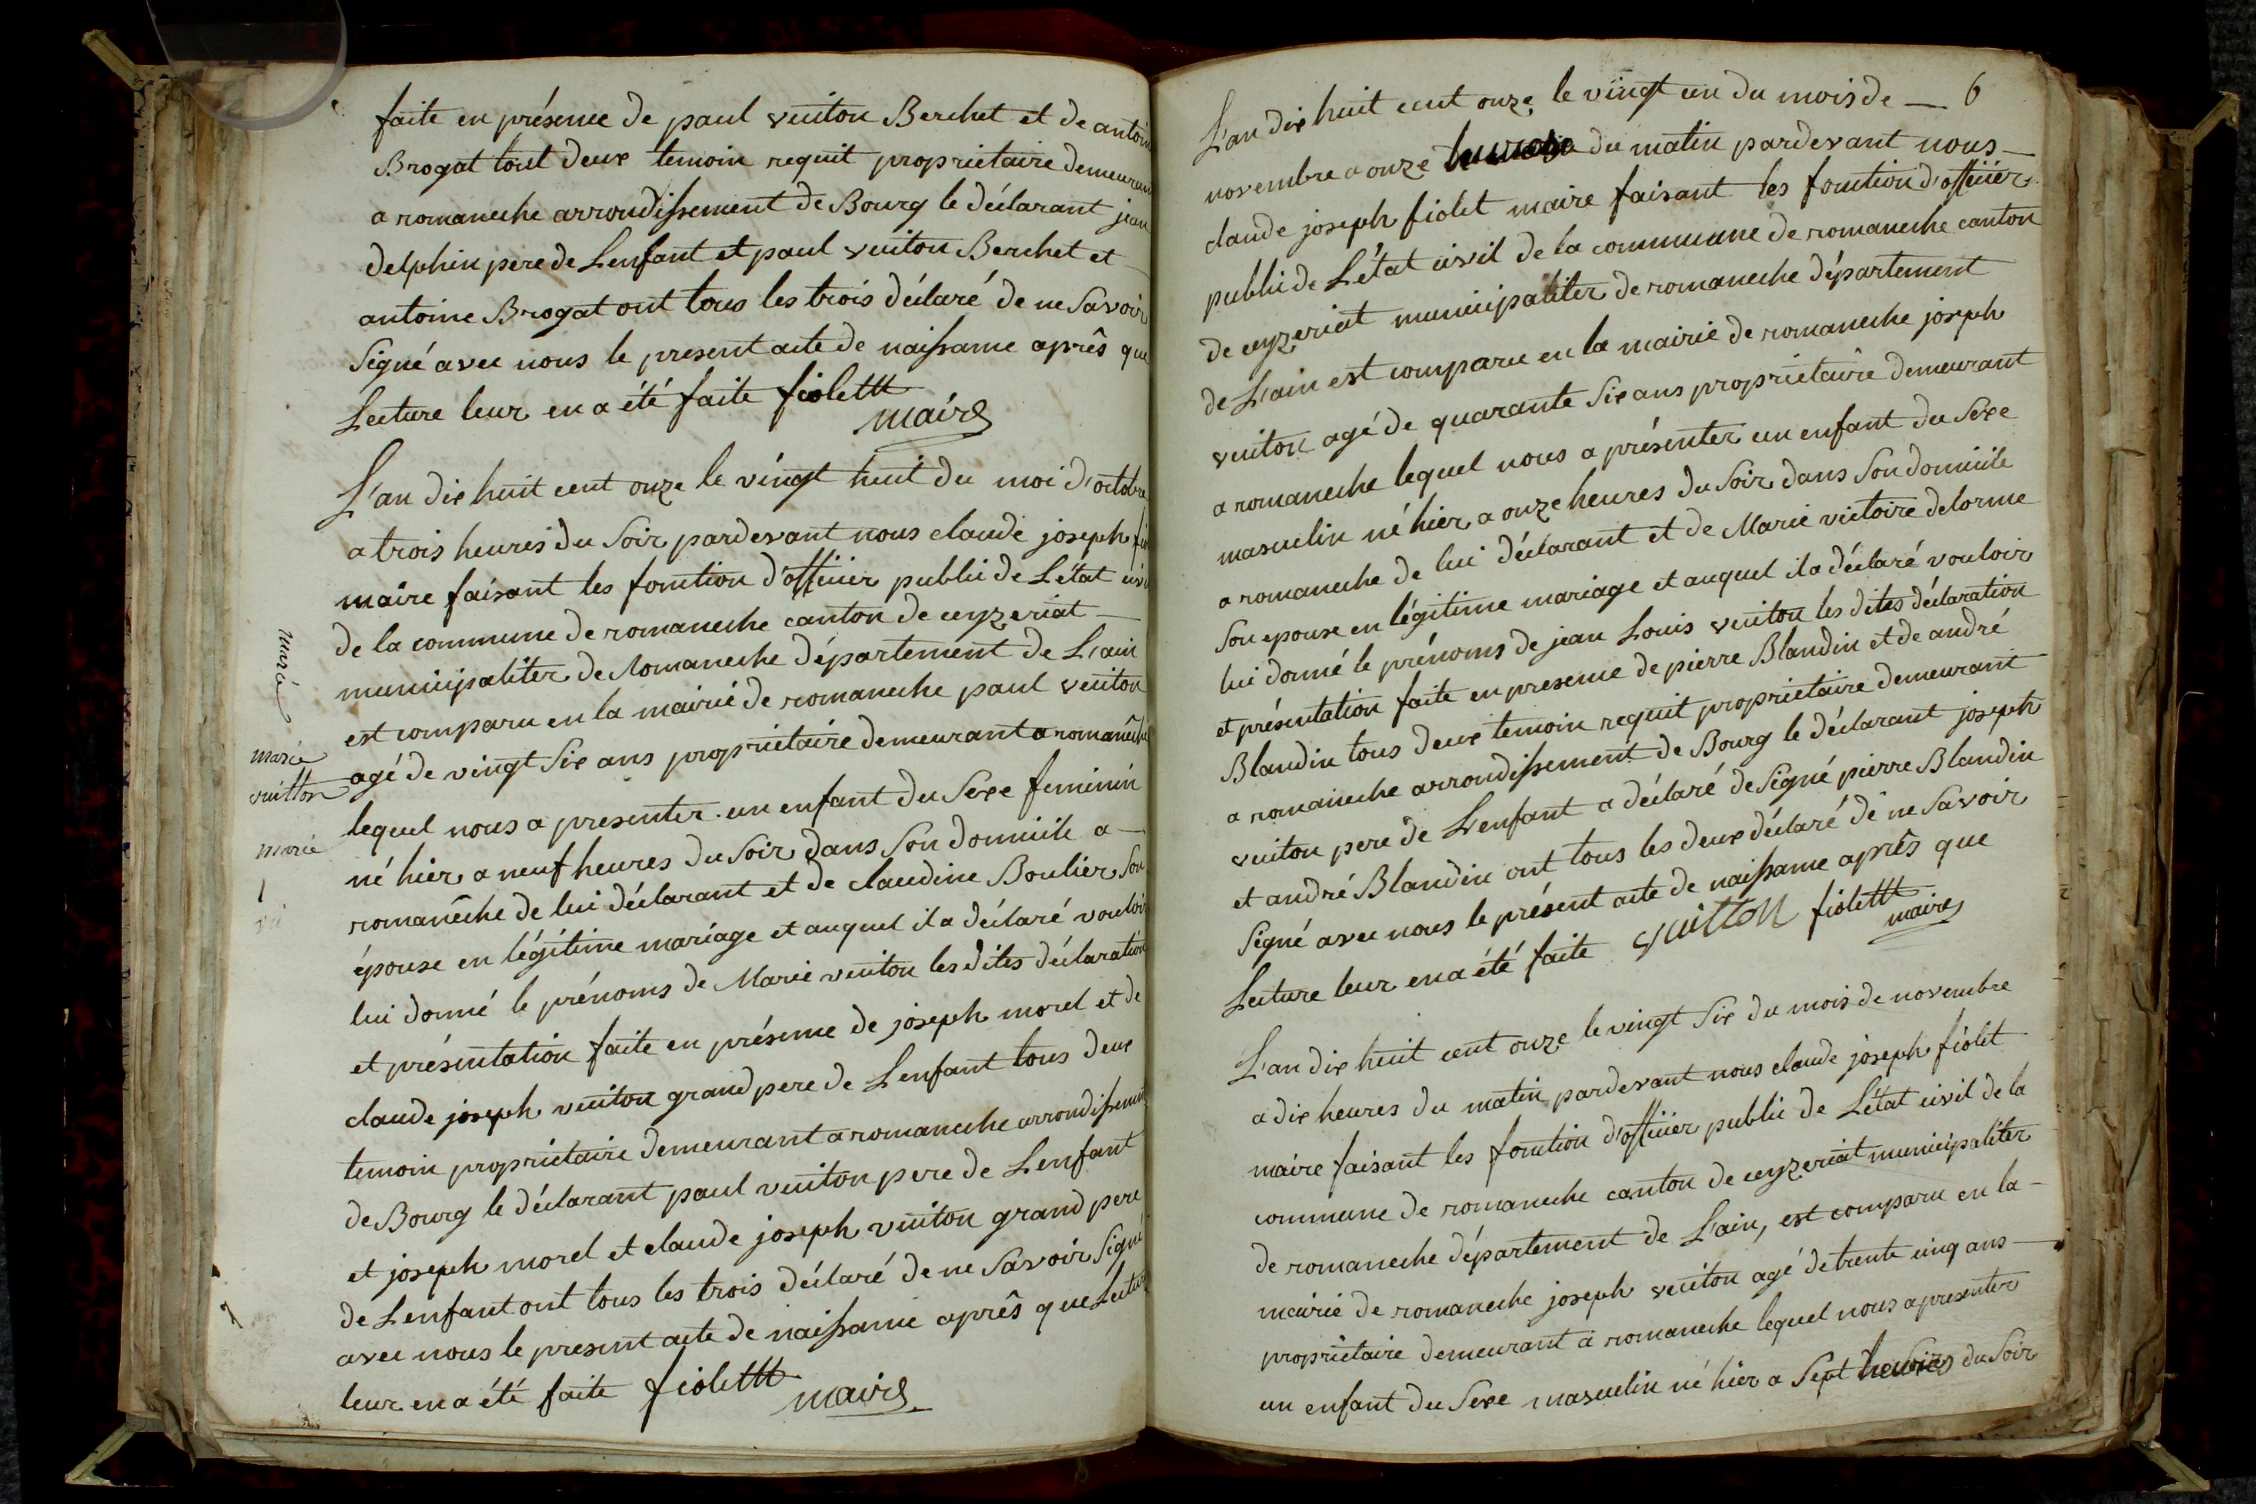 faite en présence de paul vuiton Berchet et de antoin
Brogat tout deux temoin requit proprietaire demeurant
a romaneche arrondissement de Bourg le déclarant jean
delphin pere de Lenfant et paul vuiton Berchet et
antoine Brogat ont tous les trois déclaré de ne Savoir
Signé avec nous le present acte de naissance aprês que
Lecture leur en a été faite fiolettt
maire
L'an dix huit cent onze le vingt huit du moi d'octobre
a trois heures du Soir pardevant nous claude joseph fio
maire faisant les fonction d'officier public de L'état civ
de la commune de romaneche canton de ceyzeriat
municipaliter de Romaneche département de L'ain
est comparu en la mairie de romaneche paul vuiton
agé de vingt Six ans proprietaire demeurant a romanêche
lequel nous a presenter un enfant du Sexe feminin
né hier a neuf heures du Soir dans Son domicile a
romanêche de lui déclarant et de claudine Boulier Son
épouse en légitime mariage et auquel il a déclaré vouloir
lui donné le prénoms de Marie vuiton les dites déclaration
et présentation faite en présence de joseph morel et de
claude joseph vuiton grand pere de Lenfant tous deux
temoin proprietaire demeurant a romaneche arrondissement
de Bourg le déclarant paul vuiton pere de Lenfant
et joseph morel et claude joseph vuiton grand pere
de Lenfant ont tous les trois déclaré de ne Savoir Signé
avec nous le present acte de naissance aprês que Lectur
leur en a été faite fiolettt
maire
marie
vuitton
marie
6
L'an dix huit cent onze le vingt un du mois de
novembre a onze heures du matin pardevant nous
claude joseph fiolet maire faisant les fonction d'officier
public de L'état civil de la commune de romaneche canton
de ceyzeriat municipaliter de romaneche département
de L'ain est comparu en la mairie de romaneche joseph
vuiton agé de quarante Six ans proprietaire demeurant
a romaneche lequel nous a présenter un enfant du Sexe
masculin né hier a onze heures du Soir dans Son domicile
a romaneche de lui déclarant et de Marie victoire delorme
Son epouse en légitime mariage et auquel il a déclaré vouloir
lui donné le prénoms de jean Louis vuiton les dites déclaration
et présentation faite en presence de pierre Blandin et de andré
Blandin tous deux temoin requit proprietaire demeurant
a romaneche arrondissement de Bourg le déclarant joseph
vuiton pere de L'enfant a déclaré de Signé pierre Blandin
et andré Blandin ont tous les deux déclaré de ne Savoir
Signé avec nous le présent acte de naissance aprês que
Lecture leur en a été faite vuitton fiolettt
maire
L'an dix huit cent onze le vingt Six du mois de novembre
a dix heures du matin pardevant nous claude joseph fiolet
maire faisant les fonction d'officier public de L'état civil de la
commune de romaneche canton de ceyzeriat municipaliter
de romaneche département de L'ain, est comparu en la
mairie de romaneche joseph vuiton agé de trente cinq ans
proprietaire demeurant a romaneche lequel nous a presenter
un enfant du Sexe masculin né hier a Sept heures du Soir